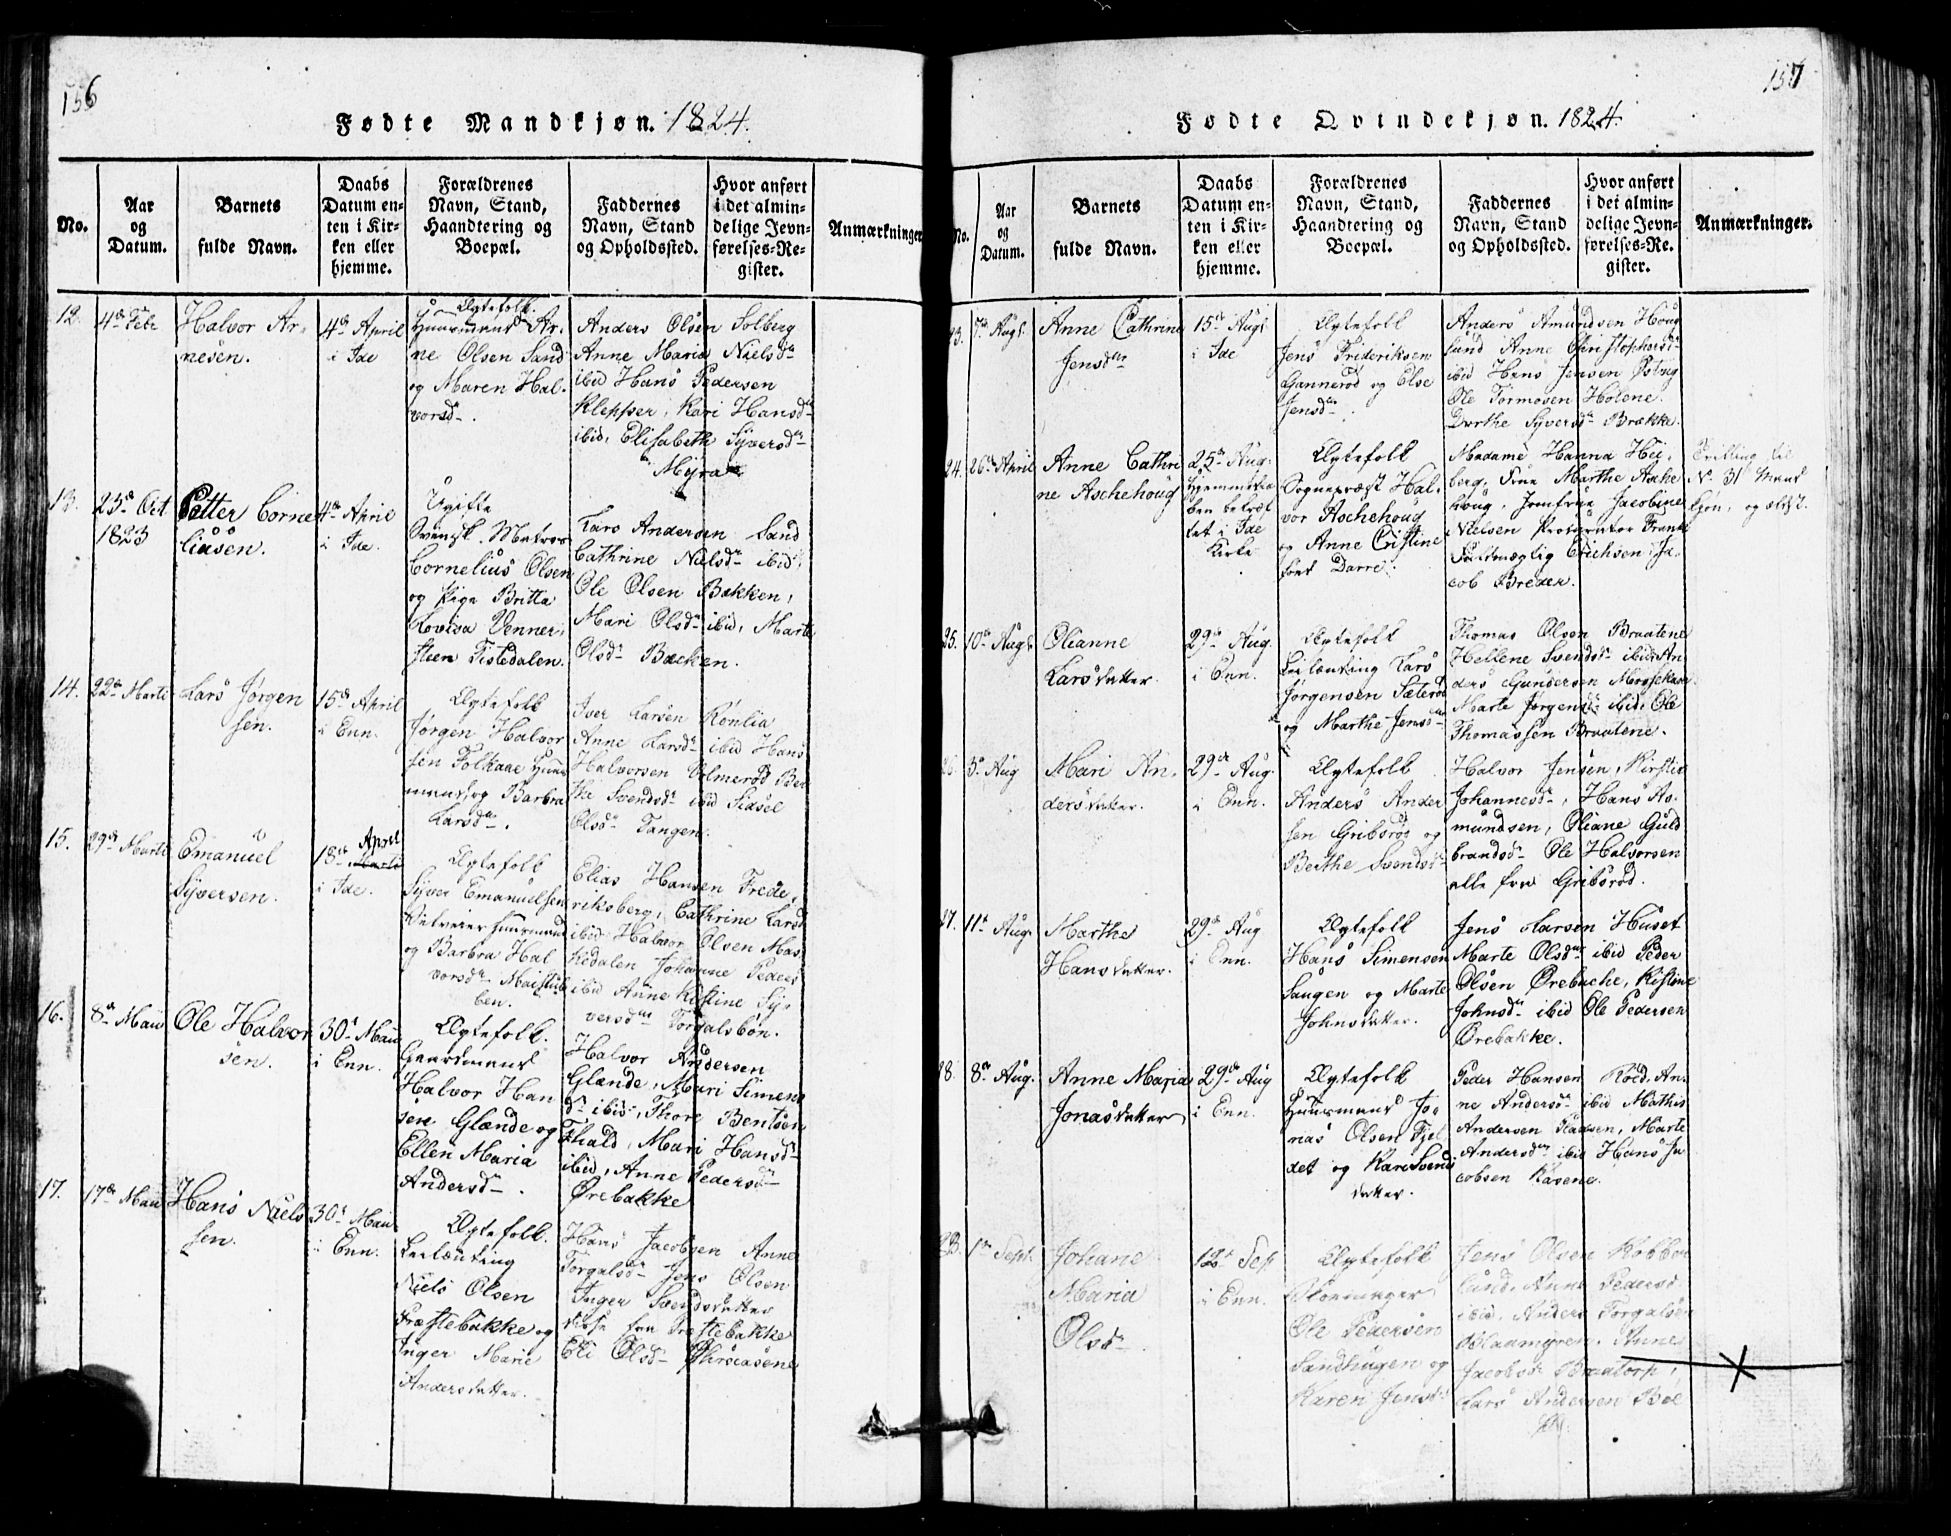 156
Fødte Mandkjøn. 1824.
No.
Aar
og
Datum.
Barnets
fulde Navn.
Daabs
Datum en-
ten i Kir-
ken eller
hjemme.
Forældrenes
Navn, Stand,
Haandtering og
Boepæl.
Faddernes
Navn, Stand
og Opholdssted.
Hvor anført
i det almin-
delige Jevn-
førelses-Re-
gister.
Anmærkninger
12.
4de Febr
Halvor Ar-
nesen.
4de April
i Ide
Ægtefolk.
Huusmand Ar-
ne Olsen Sand
og Maren Hal-
vorsdr.
Anders Olsen Solberg
Anne Maria Nielsdr
ibid Hans Pedersen
Klepper, Kari Hansdr
ibid, Elisabeth Syversdr
Myra
13.
25de Oct
1823
Petter Corne-
liusen.
4de April
i Ide.
Ugifte
Svensk Matros
Cornelius Olsen
og Pige Britta
Lovisa Venner-
steen Tistedalen.
Lars Andersen Sand
Cathrine Nielsdr ibid,
Ole Olsen Bakken,
Mari Olsdr ibid, Marte
Olsdr Backen.
14.
22de Marti
Lars Jørgen
sen.
15de April
i Enn.
Ægtefolk
Jørgen Halvor
sen Folkaae Huus
mand, og Barbra
Larsdr.
Iver Larsen Rønlia
Anne Larsdr ibid Hans
Halvorsen Ulmerød Ber
the Svendsdr ibid Sidsel
Olsdr Tangen.
15.
29de Marti
Emanuel
Syversen.
April
18de Marti
i Ide.
Ægtefolk
Syver Emanuelsen
Huusmand
og Barbra Hal
vorsdr
ben.
Elias Hansen Frede-
riksberg, Cathrine Larsd
ibid Halvor Olsen Mas-
kedalen Johanne Peders
ibid Anne Kistine Sy-
versdr Torgalsbøn.
16.
8de Maii
Ole Halvor
sen.
30te Maii
i Enn.
Ægtefolk.
Gaardmand
Halvor Han
sen Glænde og
Ellen Maria
Andersdr.
Halvor Andersen
Glænde, Mari Simens
dr ibid, Thore Bentsen
Mari Hansdr
ibid, Anne Pedersdr
Ørebakke
17.
17de Maii
Hans Niels
sen.
30te Maii
i Enn.
Ægtefolk.
Leilænding
Niels Olsen
Præstebakke og
Inger Marie
Andersdatter.
Hans Jacobsen Anne
Torgalsdr Jens Olsen
Inger Svendsdatter
disse fra Præstebakke
Eli Olsdr
157
Fødte Qvindekjøn. 1824.
No.
Aar
og
Datum.
Barnets
fulde Navn.
Daabs
Datum en-
ten i Kir-
ken eller
hjemme.
Forældrenes
Navn, Stand,
Haandtering og
Boepæl.
Faddernes
Navn, Stand
og Opholdssted.
Hvor anført
i det almin-
delige Jevn-
førelses-Re-
gister.
Anmærkninger.
23.
7de Augs.
Anne Cathrine
Jensdr
15de Augs
i Ide
Ægtefolk
Jens Frideriksen
Gannerød og Else
Jensdr.
Anders Amundsen Houg
lund Anne Christophersdr
ibid Hans Jensen Østbye
Ole Tormosen Holene.
Dorthe Syversdr Brække.
24.
26de April
Anne Cathri
ne Aschehoug
25de Aug.
Hjemmedaa
ben bekræf
tet i Ide
Kirke
Ægtefolk
Sognepræst Hal-
vor Aschehoug
og Anne Cristine
født Darre.
Madame Hanna Hei-
berg, Frue Marthe Asche
houg, Jomfrue Jacobine
Nielsen Procurator Frank
Fuldmægtig Erichsen, Ja-
cob Breder.
Tvilling til
No. 31 Mand
kjøn, og ældst.
25.
10de Augs.
Olianne
Larsdatter.
29de Aug.
i Enn.
Ægtefolk
Leilænding Lars
Jørgensen Sæterød
og Marthe Jensdr
Thomas Olsen Braatene
Hellene Svendsdr ibid An-
ders Gundersen
Marte Jørgensdr ibid, Ole
Thomassen Braatene.
26.
5te Aug
Mari An-
dersdatter.
29de Aug.
i Enn.
Ægtefolk
Anders Ander
sen Gribsrød og
Berthe Svendsdr
Halvor Jensen, Kirstie
Johannesdr, Hans As-
mundsen, Oliane Guld
brandsdr Ole Halvorsen
alle fra Gribsrød.
27.
11te Aug.
Marthe
Hansdatter.
29de Aug
i Enn.
Ægtefolk
Hans Simensen
Saugen og Marte
Johnsdatter.
Jens Larsen Huset
Marte Olsdr ibid Peder
Olsen Ørebache, Kistine
Johnsdr ibid Ole Pedersen
Ørebakke.
28.
8de Aug.
Anne Maria
Jonasdatter
29de Aug
i Enn.
Ægtefolk
Huusmand Jo-
nas Olsen Fjel
det og Kari Svends
datter.
Peder Hansen Kold, An-
ne Andersdr ibid Mathis
Andersen Marte
Andersdr ibid Hans Ja
cobsen Kasene.
29.
1ste Sept.
Johane
Maria
Olsdr
12te Sep
i Enn.
Ægtefolk
Ole Pedersen
Sandhugen og
Karen Jensdr
Jens Olsen
lund Anne Pedersd
ibid, Anders Torgalsen
Anne
Jacobsdr Braatorp,
Lars Andersen